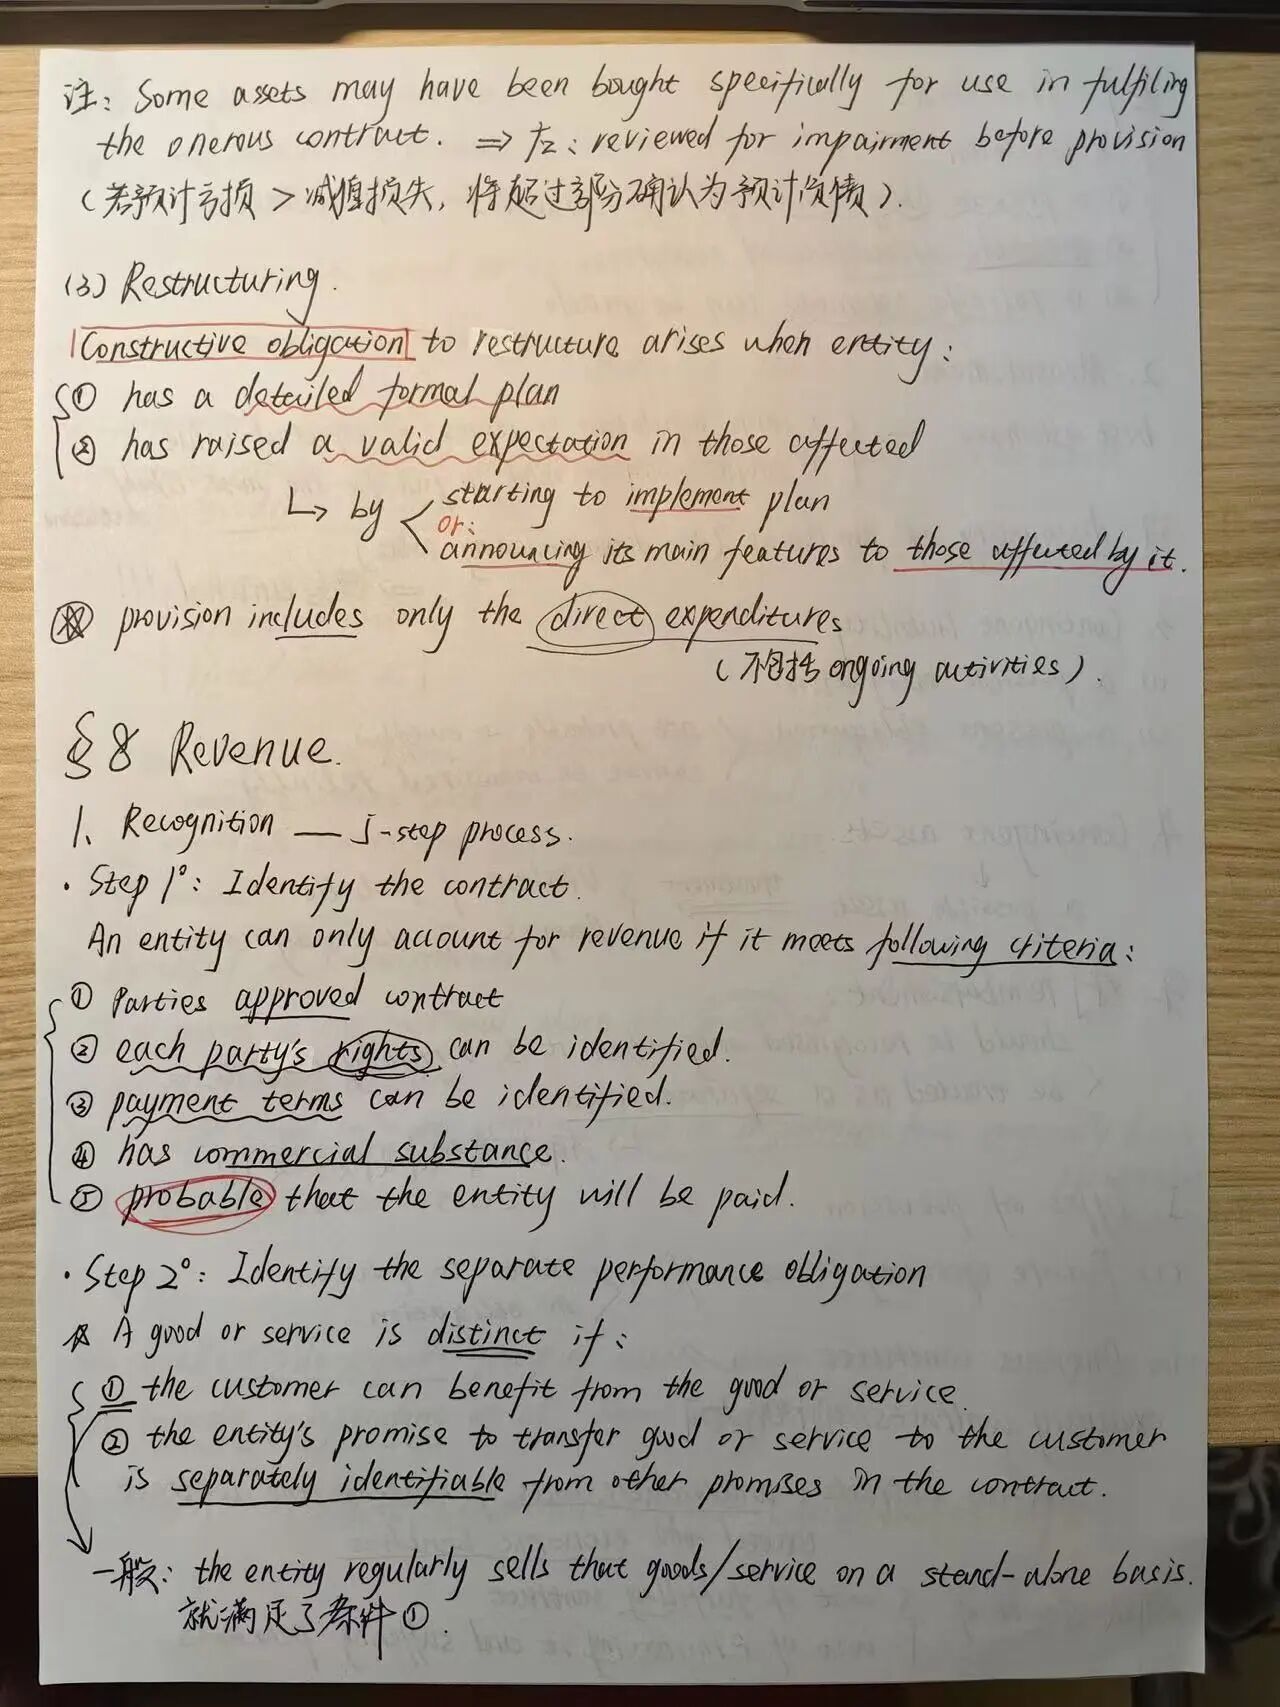 注: Some assets may have been bought specifically for use in fulfiling
the onerous contract. ⇒ 应: reviewed for impairment before provision
(若预计亏损 > 减值损失, 将超过部分确认为预计负债).
(3) Restructuring.
Constructive obligation to restructure arises when entity:
① has a detailed formal plan
② has raised a valid expectation in those affected
↳ by starting to implement plan
or:
announcing its main features to those affected by it.
provision includes only the direct expenditures
(不包括 ongoing activities).
§8 Revenue.
1. Recognition — 5-step process.
· Step 1°: Identify the contract.
An entity can only account for revenue if it meets following criteria:
① Parties approved contract
② each party's rights can be identified.
③ payment terms can be identified.
④ has commercial substance.
⑤ probable that the entity will be paid.
· Step 2°: Identify the separate performance obligation
☆ A good or service is distinct if:
① the customer can benefit from the good or service.
② the entity's promise to transfer good or service to the customer
is separately identifiable from other promises in the contract.
一般: the entity regularly sells that goods/service on a stand-alone basis.
就满足了条件①.